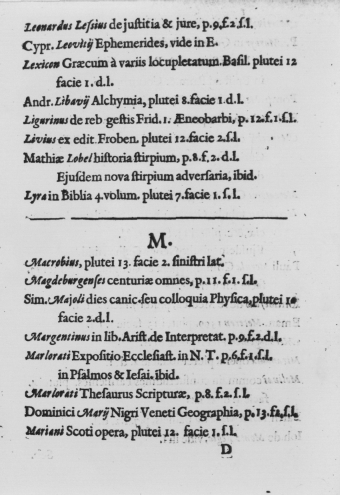 Leonardus Leſsius de juſtitia & jure, p.9.f.2.ſ.l.
Cypr. Leovitij Ephemerides, vide in E.
Lexicon Græcum à variis locupletatum. Baſil. plutei 12
facie 1. d.l.
Andr. Libavij Alchymia, plutei 8. facie 1. d.l.
Ligurinus de reb. geſtis Frid. 1. Æneobarbi, p. 12. f. 1. ſ.l.
Livius ex edit. Froben. plutei 12. facie 2. ſ.l.
Mathiæ Lobel hiſtoria ſtirpium, p. 8. f. 2. d.l.
Ejuſdem nova ſtirpium adverſaria, ibid.
Lyra in Biblia 4. volum. plutei 7. facie 1. ſ. l.
M.
Macrobius, plutei 13. facie 2. ſiniſtri lat.
Magdeburgenſes centuriæ omnes, p. 11. f. 1. ſ.l.
Sim. Majoli dies canic. ſeu colloquia Phyſica, plutei 10
facie 2. d.l.
Margentinus in lib. Ariſt. de Interpretat. p.9.f.2.d.l.
Marlorati Expoſitio Eccleſiaſt. in N. T. p.6.f.1.ſ.l.
in Pſalmos & Ieſai. ibid.
Marlorati Theſaurus Scripturæ, p.8. f.2. ſ.l.
Dominici Marij Nigri Veneti Geographia, p. 13. f.2. ſ.l.
Mariani Scoti opera, plutei 12. facie 1. ſ.l.
D